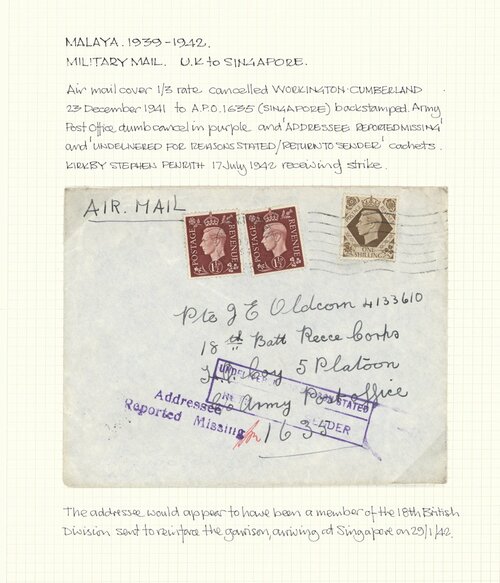 MALAYA. 1939-1942.
MILITARY MAIL. U.K to SINGAPORE.
Air mail cover 1/3 rate cancelled WORKINGTON·CUMBERLAND
23 December 1941 to A.P.O. 1635 (SINGAPORE) backstamped. Army
Post Office dumb cancel in purple and 'ADDRESSEE REPORTED MISSING'
and 'UNDELIVERED FOR REASONS STATED/RETURN TO SENDER' cachets.
KIRKBY STEPHEN PENRITH 17 July 1942 receiving strike.
AIR. MAIL
POSTAGE REVENUE
1½
POSTAGE REVENUE
1½
ONE SHILLING
Pte J E Oldcorn 4133610
18th Batt Recce Corps
Coy 5 Platoon
UNDELIVER
STATED
Army Post office
DER
Addressee
Reported Missing
1635
The addressee would appear to have been a member of the 18th British
Division sent to reinforce the garrison, arriving at Singapore on 29/1/42.